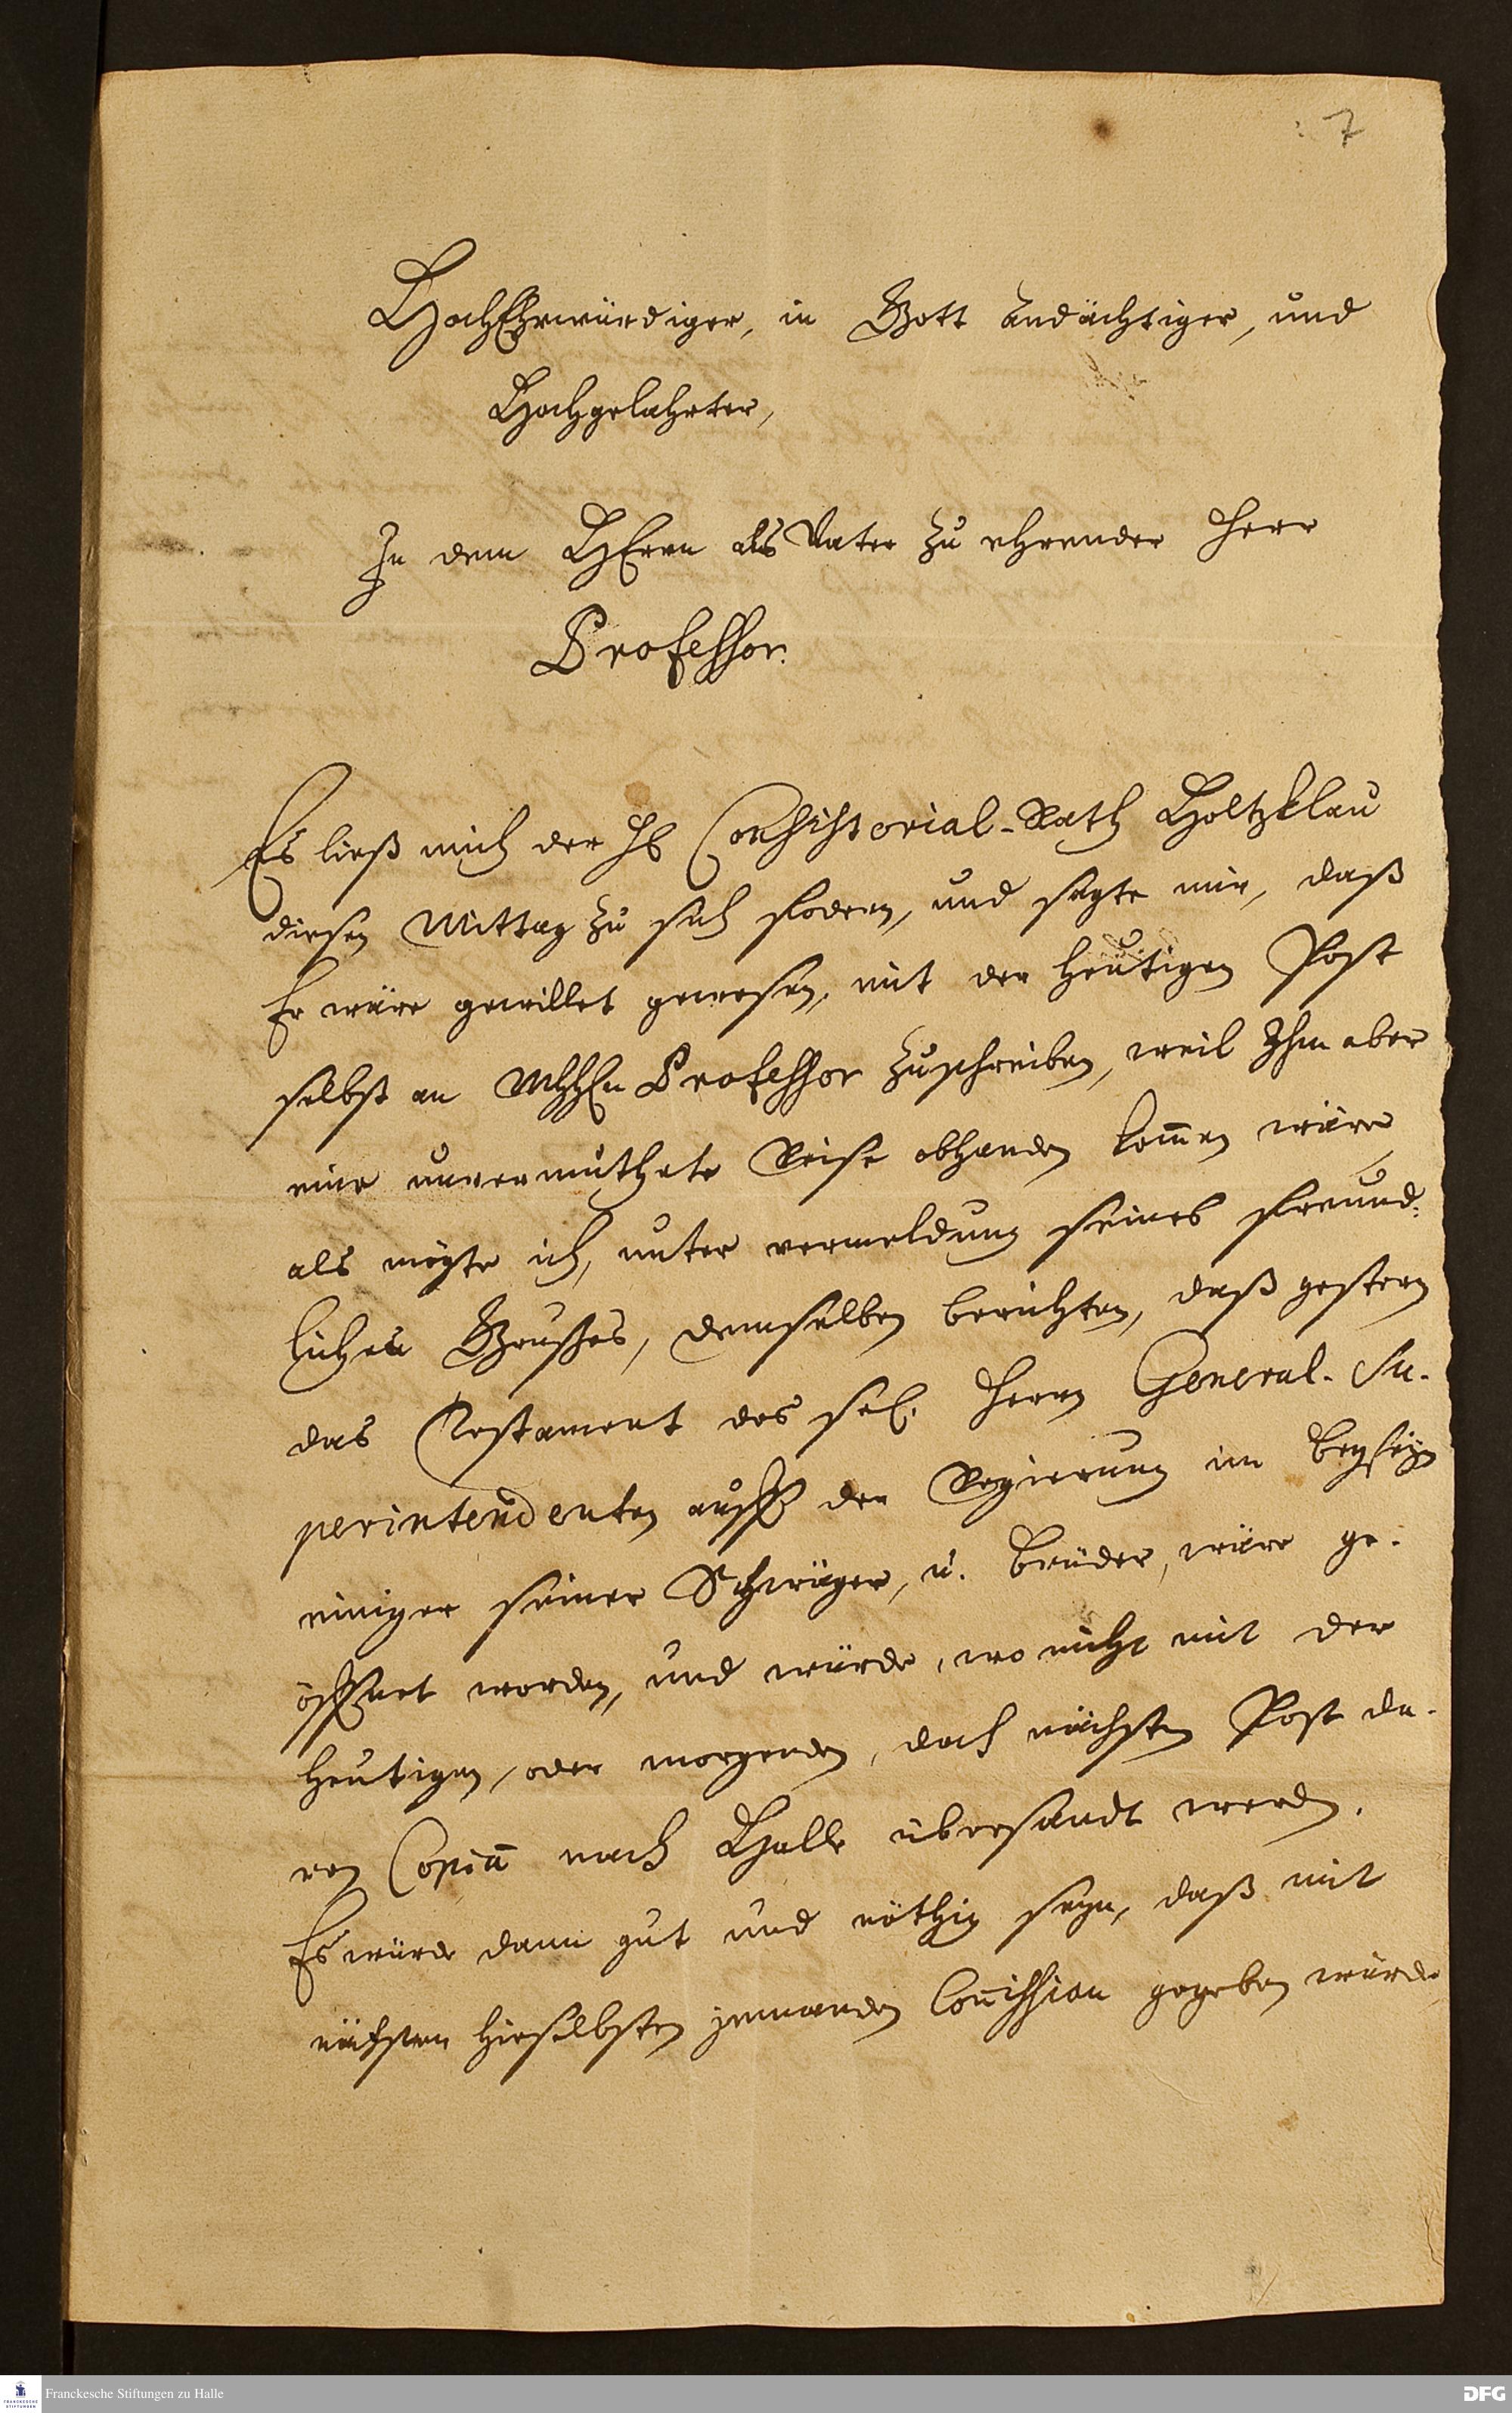 7
HochEhrwürdiger, in Gott andächtiger, und
Hochgelahrter,
In dem HErrn als Vater zu ehrender Herr
Professor.
Es ließ mich der H. Consistorial-Rath Holtzklau
diesen Mittag zu sich fodern, und sagte mir, daß
Er wäre gewillet gewesen, mit der heutigen Post
selbst an MHHEn Professor zuschreiben, weil Ihm aber
eine unvermuthete Reise obhanden kom̅en wäre
als mögte ich, unter vermeldung seines freund-
lichen Grußes, demselben berichten, daß gestern
das Testament des sel. Herrn General-Su-
perintendenten auff der Regierung im beyseyn
einiger seiner Schwäger, u. Brüder, wäre ge-
öffnet worden, und würde, wo nicht mit der
heutigen, oder morgenden, doch nächsten Post da-
von Copia̅ nach Halle übersandt werden.
Es würde dann gut und nöthig seyn, daß mit
nächsten hieselbsten jemanden Com̅ission gegeben würde
Franckesche Stiftungen zu Halle
FRANCKESCHE
STIFTUNGEN
DFG